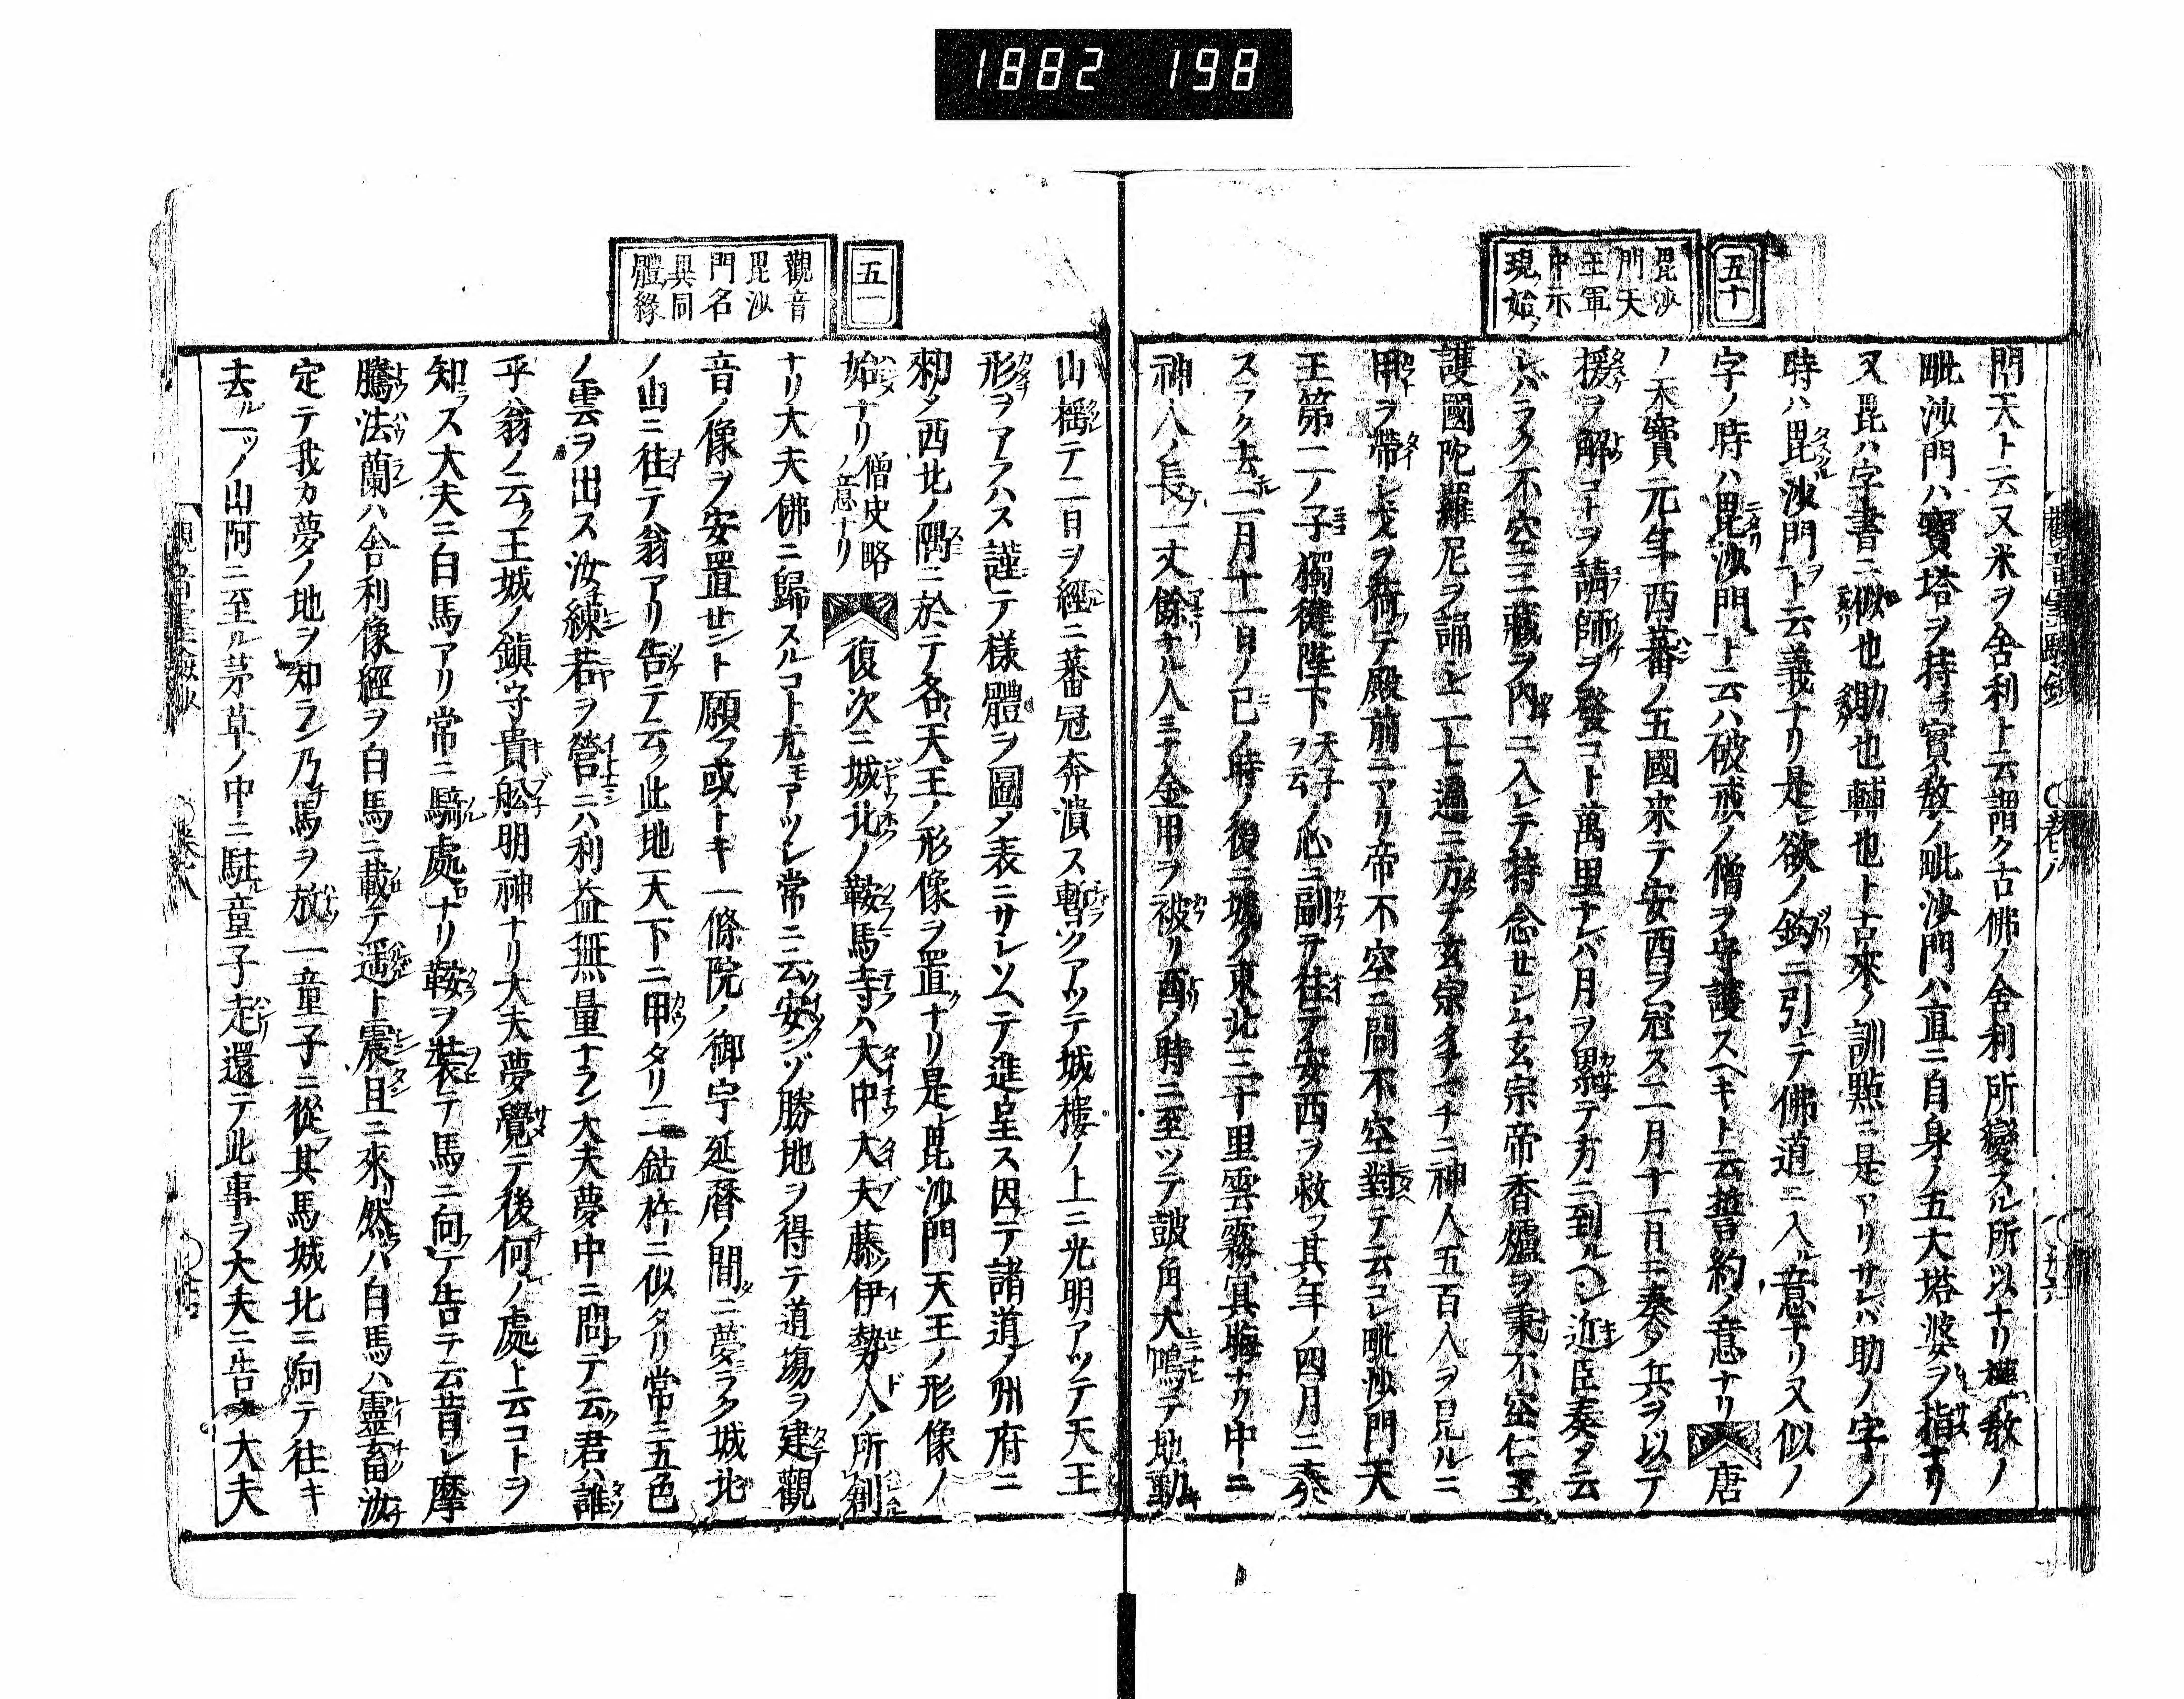 1882 198
五十
毘沙
門天
王軍
中示
現始
門天ト云又米ヲ舎利ト云謂ク古佛ノ舎利所變スル所以ナリ權教ノ
毗沙門ハ寶塔ヲ持チ實教ノ毗沙門ハ直ニ自身ノ五大塔婆ヲ指ナリ
又毘ハ字書ニ似也勘也輔也ト古來ノ訓點ニ是アリサレバ助ノ字ノ
時ハ毘沙門ト云義ナリ是欲ノ鈎ニ引テ佛道ニ入ル意ナリ又似ノ
字ノ時ハ毘沙門ト云ハ破戒ノ僧ヲ守護スヘキト云誓約ノ意ナリ 唐
ノ天寶元年西蕃ノ五國來テ安西ヲ冠ス二月十一日ニ奏ノ兵ヲ以テ
援ヲ解コトヲ請師ヲ發コト萬里ナレバ月ヲ累テ方ニ到ルヘシ近臣奏ノ云
レバラク不空三藏ヲ内ニ入レテ持念セシム玄宗帝香爐ヲ秉不空仁王
護國陀羅尼ヲ誦シ二七遍ニ方テ玄宗タチマチニ神人五百人ヲ見ルニ
甲ヲ帶シ戈ヲ荷テ殿前ニアリ帝不空ニ問不空對テ云コレ毗沙門天
王第二ノ子獨健陛下天子ヲ云ノ心ニ副テ往テ安西ヲ救フ其年ノ四月ニ奏
スラク去二月十一日ノ巳ノ時ノ後ニ城ノ東北三十里雲霧冥晦ナリ中ニ
神人ノ長一丈餘ナル人ミナ金甲ヲ被リ酉ノ時ニ至ツテ皷角大鳴テ地動
五一
觀音
毘沙
門名
異同
體縁
山搖テ二日ヲ經ニ蕃冠奔潰ス暫クアツテ城樓ノ上ニ光明アツテ天王
形ヲアラハス謹テ様體ヲ圖〆表ニサシソヘテ進呈ス因テ諸道ノ州府ニ
勅〆西北ノ隅ニ於テ各天王ノ形像ヲ置ナリ是毘沙門天王ノ形像ノ
始ナリ僧史略ノ意ナリ 復次ニ城北ノ鞍馬寺ハ大中大夫藤伊勢人ノ所創
ナリ大夫佛ニ歸スルコト尤モアツシ常ニ云安ンゾ勝地ヲ得テ道塲ヲ建觀
音ノ像ヲ安置セント願フ或トキ一條院ノ御宇延暦ノ間ニ夢ラク城北
ノ山ニ往テ翁アリ告テ云ク此地天下ニ甲タリ三鈷杵ニ似タリ常ニ五色
ノ雲ヲ出ス汝練若ヲ營ニハ利益無量ナラン大夫夢中ニ問テ云ク君ハ誰
乎翁ノ云ク王城ノ鎭守貴舩明神ナリ大夫夢覺テ後何ノ處ト云コトヲ
知ラス大夫ニ白馬アリ常ニ騎處ナリ鞍ヲ裝テ馬ニ向テ告ヲ云昔シ摩
騰法蘭ハ舎利像經ヲ白馬ニ載テ遥ト震且ニ來リ然ハ白馬ハ靈畜汝
定テ我カ夢ノ地ヲ知ラン乃馬ヲ放一童子ニ從其馬城北ニ向テ往キ
去ル一ツノ山阿ニ至ル茅草ノ中ニ駐童子走還テ此事ヲ大夫ニ告ク大夫